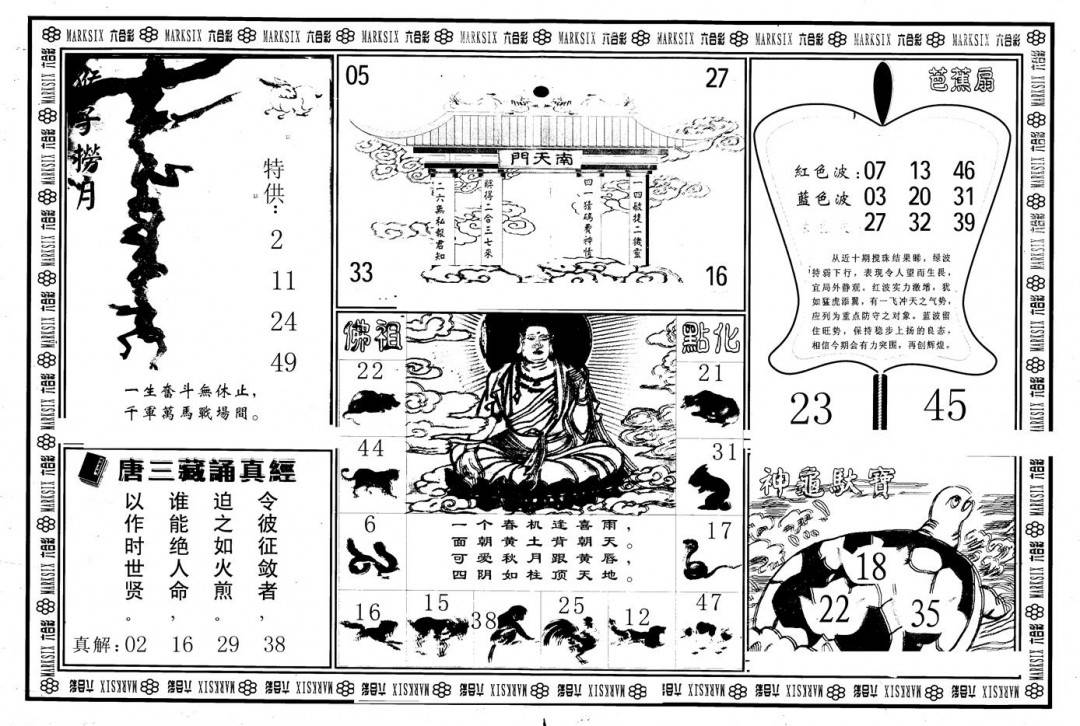 MARKSIX 六合彩 MARKSIX 六合彩 MARKSIX 六合彩 MARKSIX 六合彩 MARKSIX 六合彩 MARKSIX 六合彩 MARKSIX 六合彩 MARKSIX 六合彩 MARKSIX 六合彩 MARKSIX 六合彩
猴子撈月
特供：
2
11
24
49
一生奮斗無休止，
千軍萬馬戰場間。
05
27
南天門
一四敏捷二機靈
四一猪碼費神情
將得二合三七采
二六無私報君知
33
16
芭蕉扇
紅色波：07 13 46
藍色波 03 20 31
27 32 39
从近十期搅珠结果睇，绿波
持弱下行，表现令人望而生畏，
宜局外静观。红波实力激增，犹
如猛虎添翼，有一飞冲天之气势，
应列为重点防守之对象。蓝波留
住旺势，保持稳步上扬的良态，
相信今期会有力突围，再创辉煌。
23
45
佛祖
點化
22
21
44
31
6
17
一个春机逢喜雨，
面朝黄土背朝天。
可爱秋月跟黄唇，
四阴如柱顶天地。
16
15
38
25
12
47
唐三藏誦真經
令彼征敛者，
迫之如火煎。
谁能绝人命，
以作时世贤。
真解：02 16 29 38
神龜馱寶
18
22
35
MARKSIX 六合彩 MARKSIX 六合彩 MARKSIX 六合彩 MARKSIX 六合彩 MARKSIX 六合彩 MARKSIX 六合彩 MARKSIX 六合彩 MARKSIX 六合彩 MARKSIX 六合彩 MARKSIX 六合彩